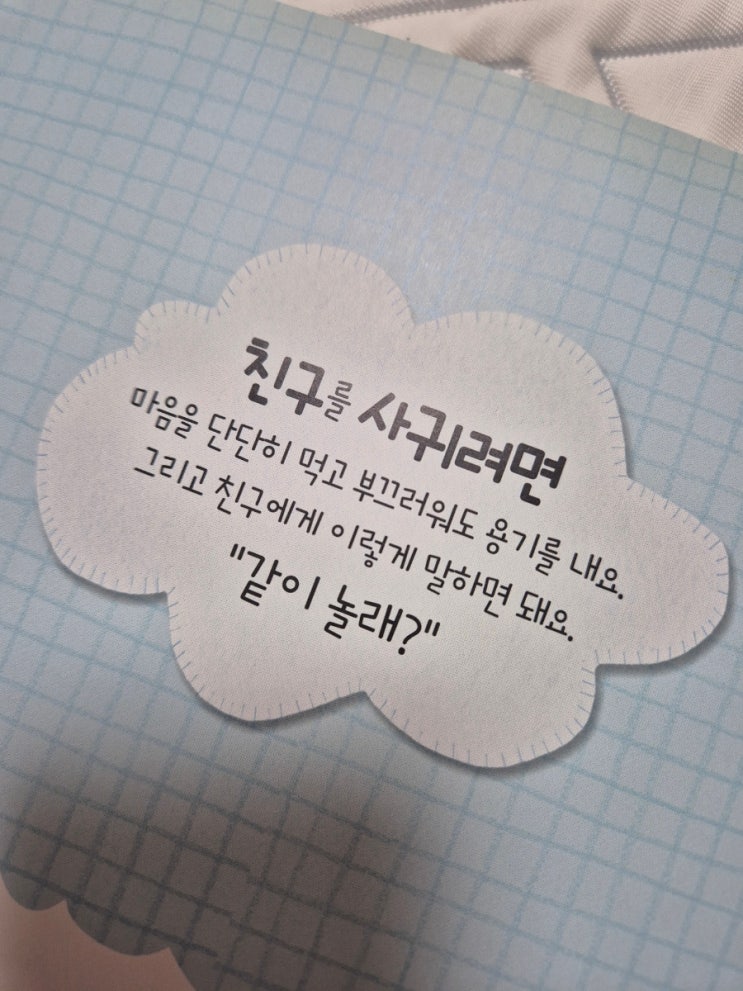 친구를 사귀려면
마음을 단단히 먹고 부끄러워도 용기를 내요.
그리고 친구에게 이렇게 말하면 돼요.
"같이 놀래?"